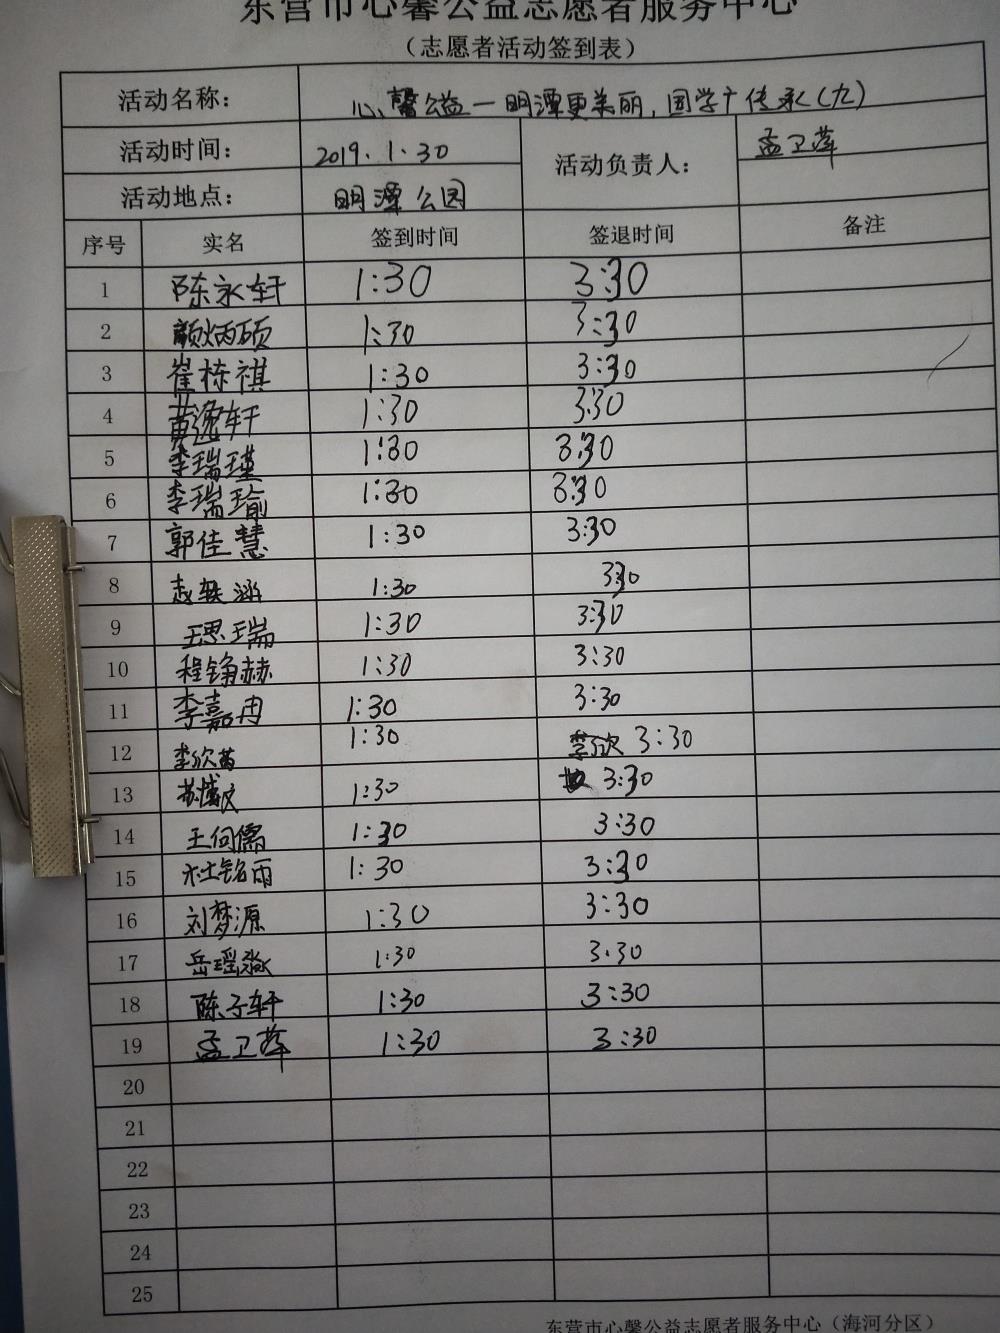 东营市心馨公益志愿者服务中心
（志愿者活动签到表）
活动名称： 心馨公益一明潭更美丽，国学广传承（九）
活动时间： 2019.1.30 活动负责人： 孟卫萍
活动地点： 明潭公园
序号 实名 签到时间 签退时间 备注
1 陈永轩 1:30 3:30
2 颜炳硕 1:30 3:30
3 崔栋祺 1:30 3:30
4 黄逸轩 1:30 3:30
5 李瑞瑾 1:30 3:30
6 李瑞瑜 1:30 3:30
7 郭佳慧 1:30 3:30
8 赵轶涵 1:30 3:30
9 王思瑞 1:30 3:30
10 程铮赫 1:30 3:30
11 李嘉冉 1:30 3:30
12 李欣 1:30 李欣 3:30
13 苏博文 1:30 3:30
14 王何儒 1:30 3:30
15 杜铭雨 1:30 3:30
16 刘梦源 1:30 3:30
17 岳瑶淼 1:30 3.30
18 陈子轩 1:30 3:30
19 孟卫萍 1:30 3:30
20
21
22
23
24
25
东营市心馨公益志愿者服务中心（海河分区）